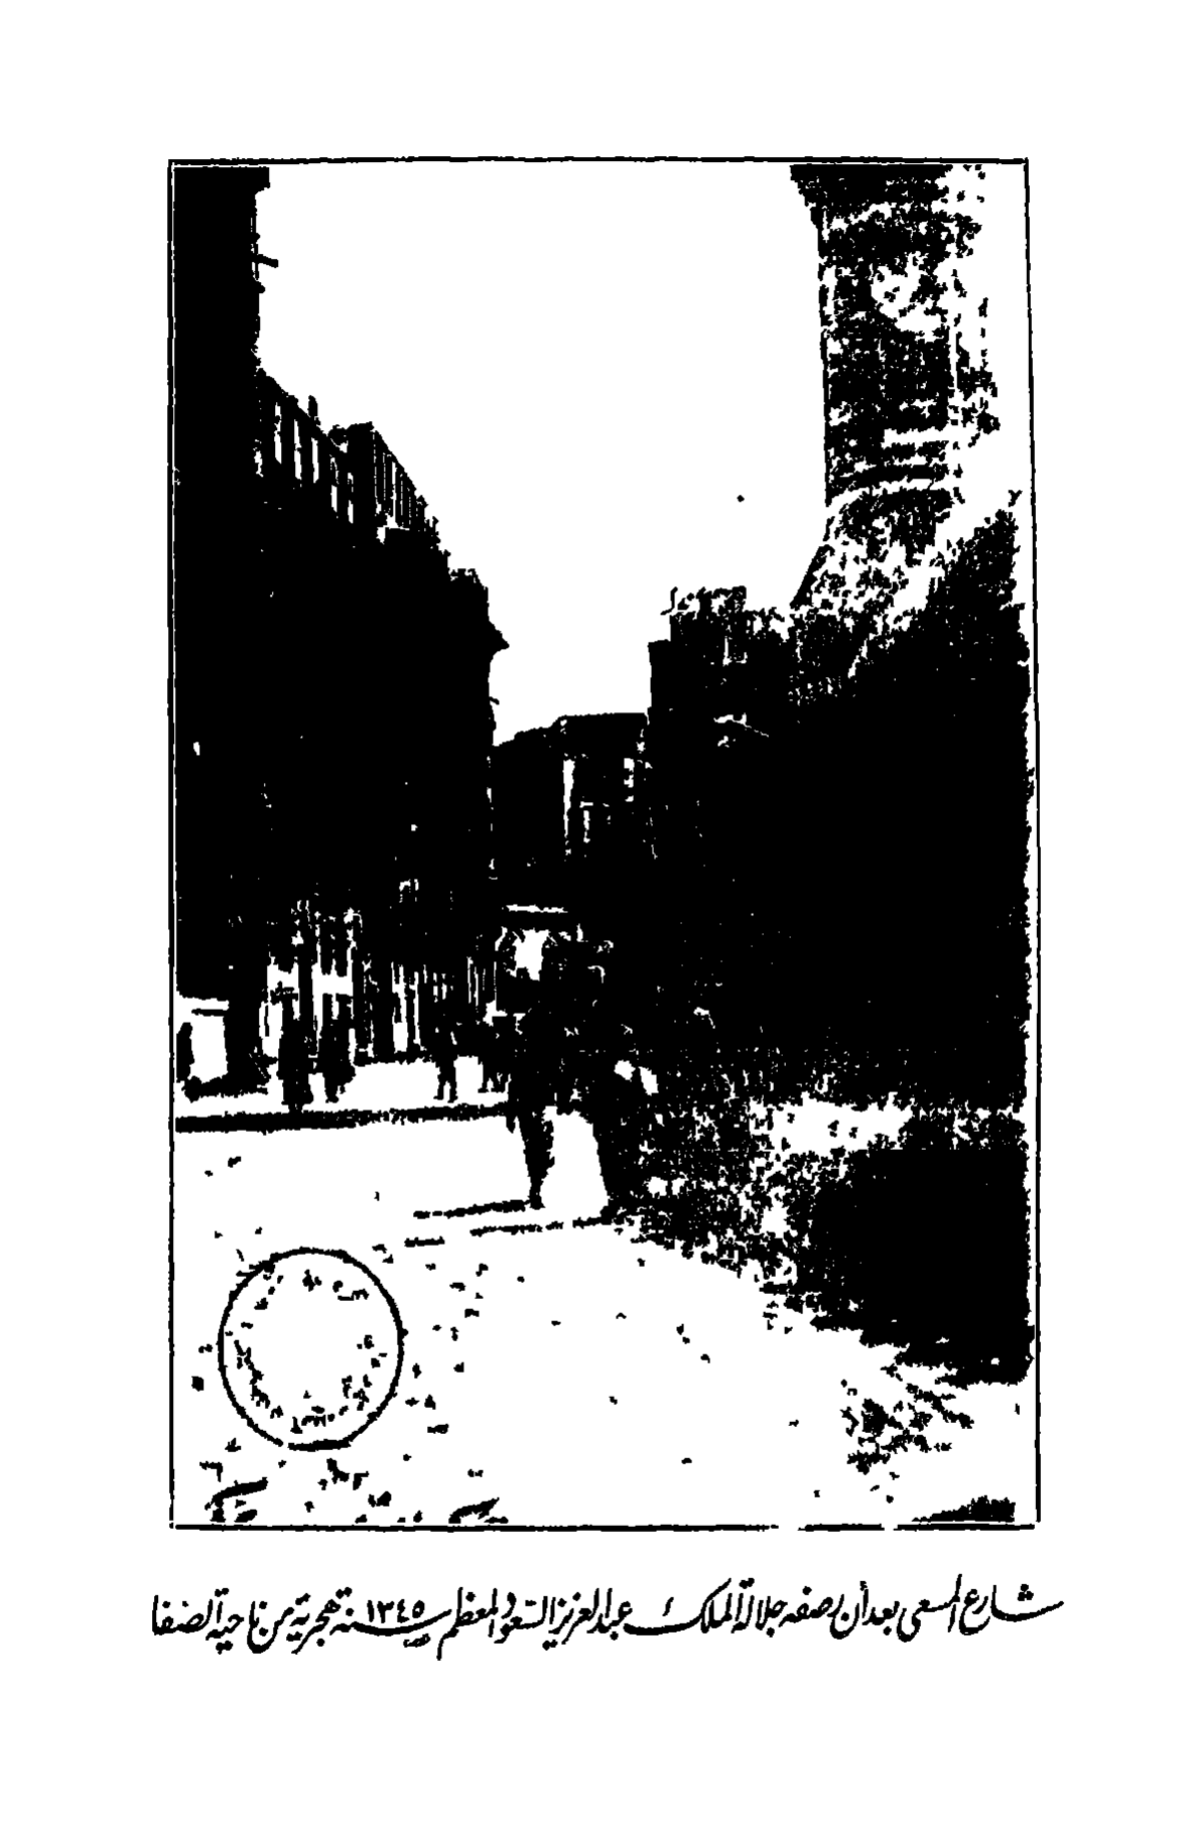 شارع المسعى بعد أن رصفه جلالة الملك عبدالعزيز السعود المعظم سنة ١٣٤٥ هجرية من ناحية الصفا